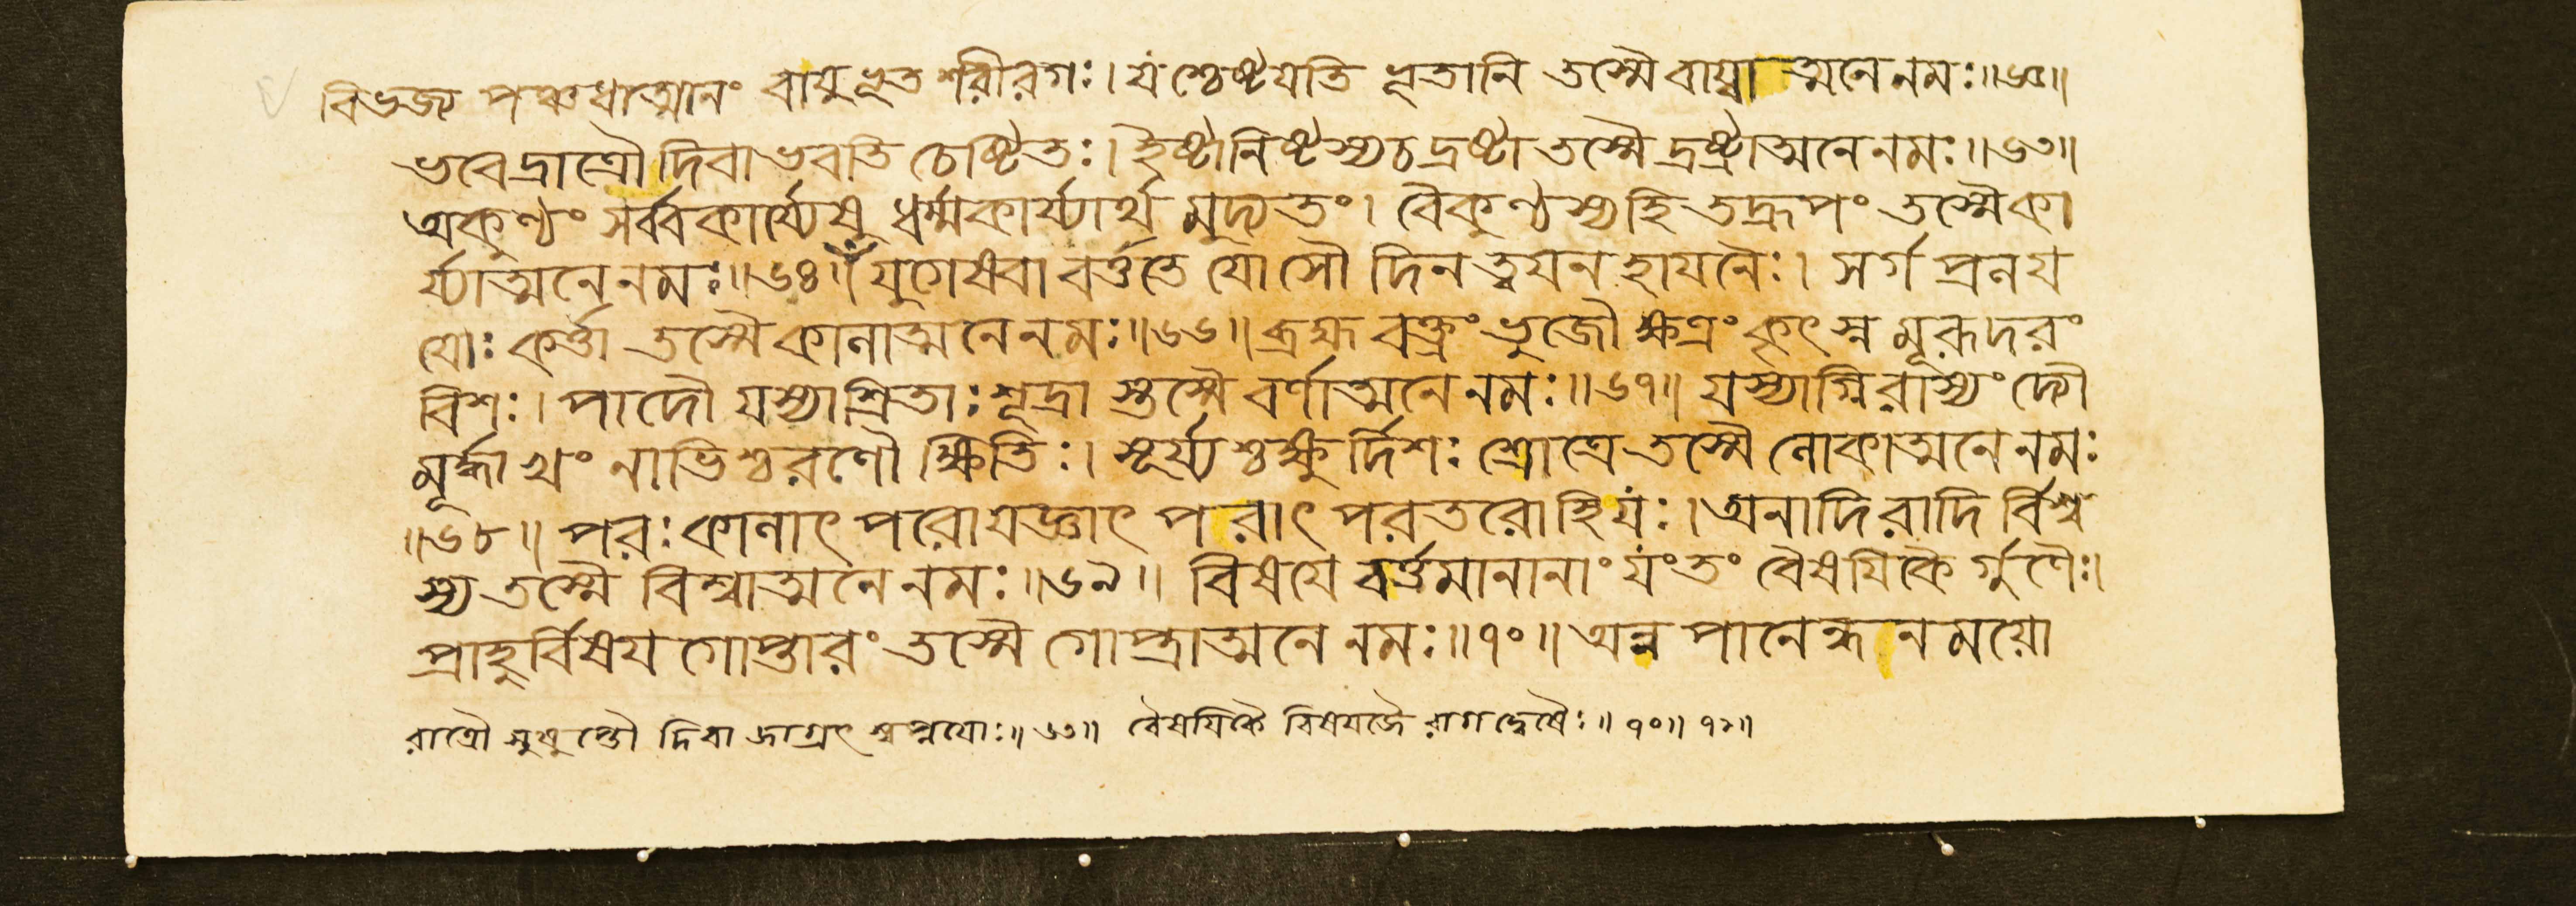 বিভজ্য পঞ্চধাত্মানং বায়ুর্ভূত শরীরগঃ। যশ্চেষ্টয়তি ভূতানি তস্মৈ বায়্বাত্মনে নমঃ॥৬২॥
ভবেদ্রাত্রৌ দিবা ভবতি চেষ্টিতঃ। ইষ্টানিষ্টস্য চ দ্রষ্টা তস্মৈ দ্রষ্ট্রাত্মনে নমঃ॥৬৩॥
অকুণ্ঠং সর্ব্বকার্য্যেষু ধর্ম্মকার্য্যার্থ মুদ্যতং। বৈকুণ্ঠস্য হি তদ্রূপং তস্মৈ কা
র্য্যাত্মনে নমঃ॥৬৪॥ যুগেষ্বাবর্ত্ততে যোসৌ দিনর্ত্বয়ন হায়নৈঃ। সর্গ প্রলয়
য়োঃ কর্ত্তা তস্মৈ কালাত্মনে নমঃ॥৬৬॥ ব্রহ্ম বক্ত্রং ভুজৌ ক্ষত্রং কৃৎস্ন মূরূদরং
বিশঃ। পাদৌ যস্যাশ্রিতাঃ শূদ্রা স্তস্মৈ বর্ণাত্মনে নমঃ॥৬৭॥ যস্যাগ্নিরাস্যং দ্যৌ
মূর্দ্ধা খং নাভিশ্চরণৌ ক্ষিতিঃ। সূর্য্যশ্চক্ষুর্দিশঃ শ্রোত্রে তস্মৈ লোকাত্মনে নমঃ
॥৬৮॥ পরঃ কালাৎ পরো যজ্ঞাৎ পরাৎ পরতরো হি যঃ। অনাদিরাদি র্বিশ্ব
স্য তস্মৈ বিশ্বাত্মনে নমঃ॥৬৯॥ বিষয়ে বর্ত্তমানানাং যং তং বৈষয়িকৈ র্গুণৈঃ।
প্রাহুর্বিষয় গোপ্তারং তস্মৈ গোপ্ত্রাত্মনে নমঃ॥৭০॥ অন্ন পানেন্ধন ময়ো
রাত্রৌ সুষুপ্তৌ দিবা জাগ্রৎ স্বপ্নয়োঃ॥৬৩॥ বৈষয়িকৈ বিষয়জৈ রাগদ্বেষৈঃ॥৭০॥৭১॥